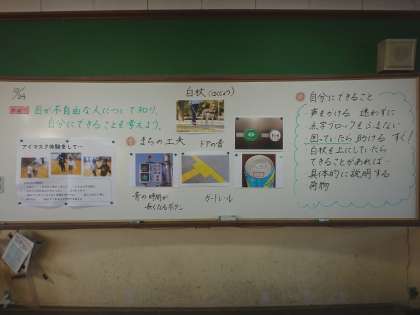 目が不自由な人について知り、
自分にできることを考えよう。
アイマスク体験をして…
白杖(はくじょう)
まちの工夫
ドアの音
青の時間が
長くなるボタン
ガードレール
自分にできること
声をかける 迷わずに
点字ブロックをふまない
困っていたら助ける すぐ
白杖を上にしていたら
できることがあれば…
具体的に説明する
荷物